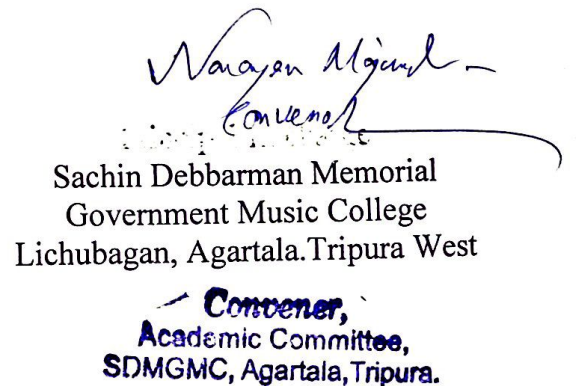 Narayan Majumd
Convenor
Sachin Debbarman Memorial
Government Music College
Lichubagan, Agartala.Tripura West
Convener,
Academic Committee,
SDMGMC, Agartala,Tripura.